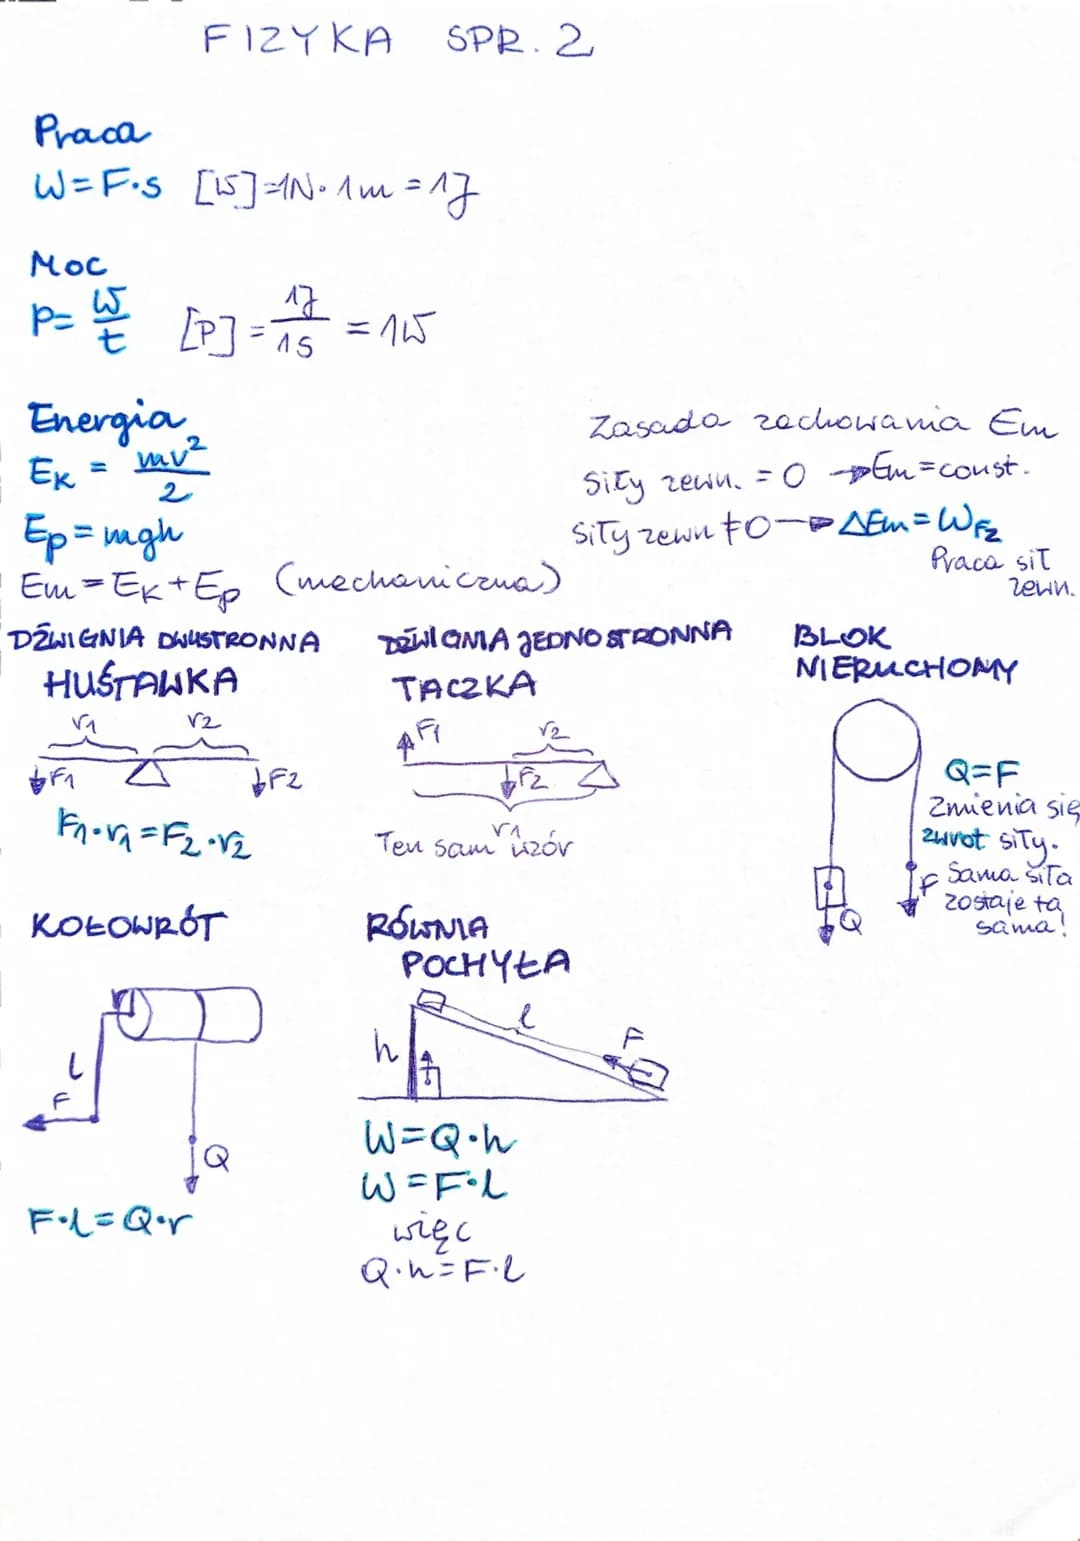 FIZYKA SPR. 2
Praca
W=F·s [W]=1N·1m=1J
Moc
P=W/t [P]=1J/1s=1W
Energia
Ek = mv²/2
Ep=mgh
Em=Ek+Ep (mechaniczna)
Zasada zachowania Em
Siły zewn. = 0 → Em=const.
Siły zewn ≠0 → ΔEm=WFz
Praca sił
zewn.
DŹWIGNIA DWUSTRONNA
HUŚTAWKA
r1 r2
F1 F2
F1·r1=F2·r2
DŹWIGNIA JEDNOSTRONNA
TACZKA
F1 r2
F2
r1
Ten sam wzór
BLOK
NIERUCHOMY
Q=F
Zmienia się
zwrot siły.
Sama siła
zostaje ta
sama!
F
Q
KOŁOWRÓT
l
F
Q
F·l=Q·r
RÓWNIA
POCHYŁA
l
h F
W=Q·h
W=F·l
więc
Q·h=F·l